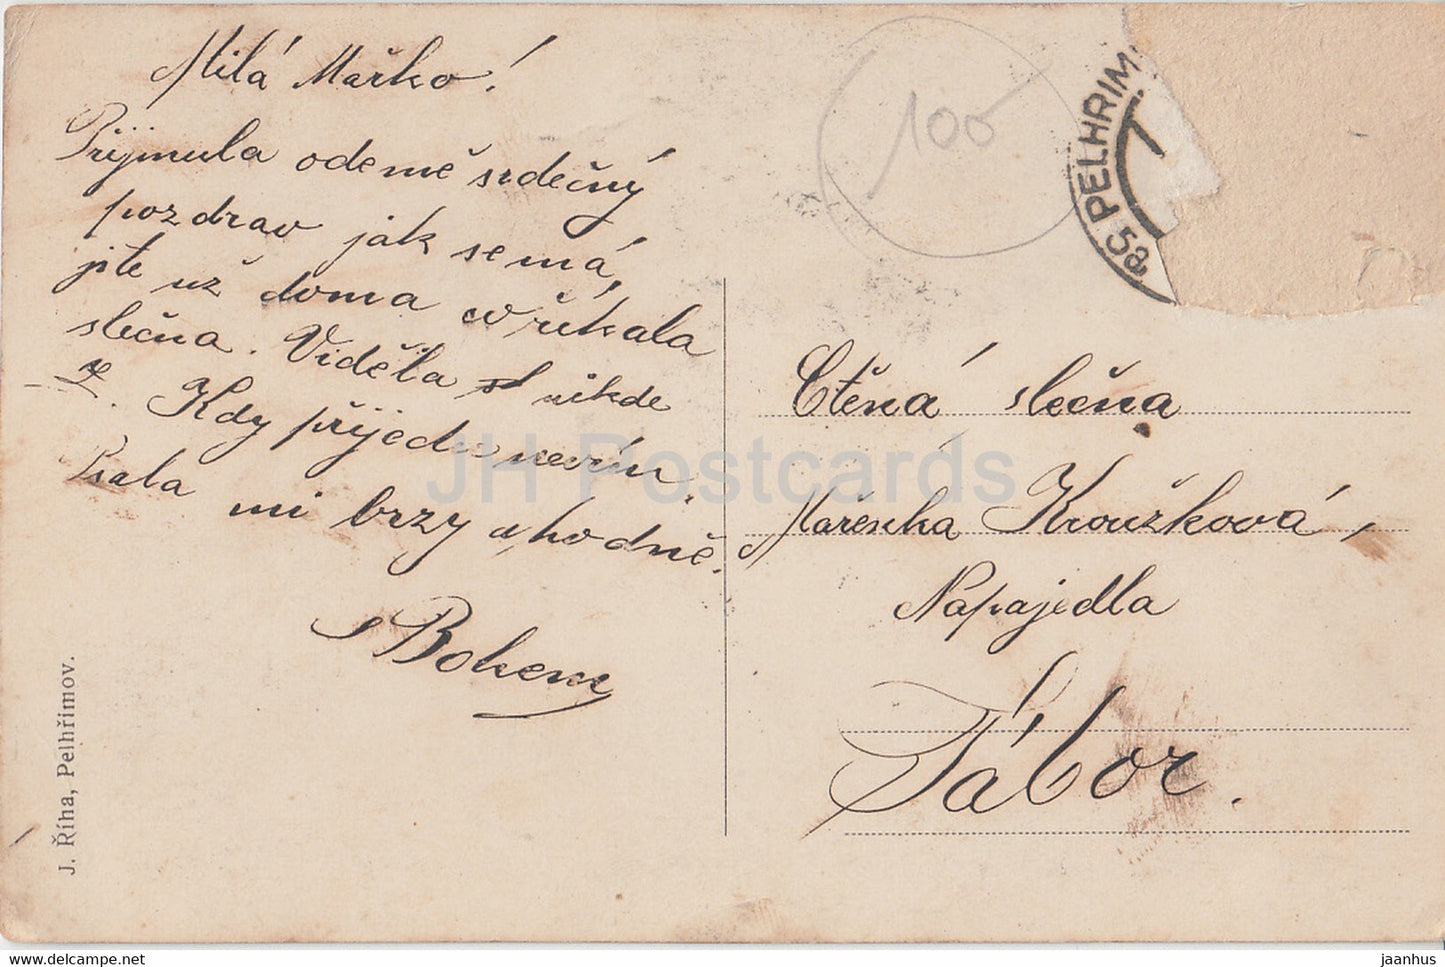 Milá Mařko!
Přijmula odemě srdečný
pozdrav jak se má,
jste už doma co říkala
slečna. Viděla nikde
Kdy přijedu nevím.
Psala mi brzy a hodně.
J. Říha, Pelhřimov.
100
PELHŘIM
5a
Ctěná slečna
Mařenka Kroužková,
Napajedla
Tábor.
JH Postcards
delcampe.net
jaanhus